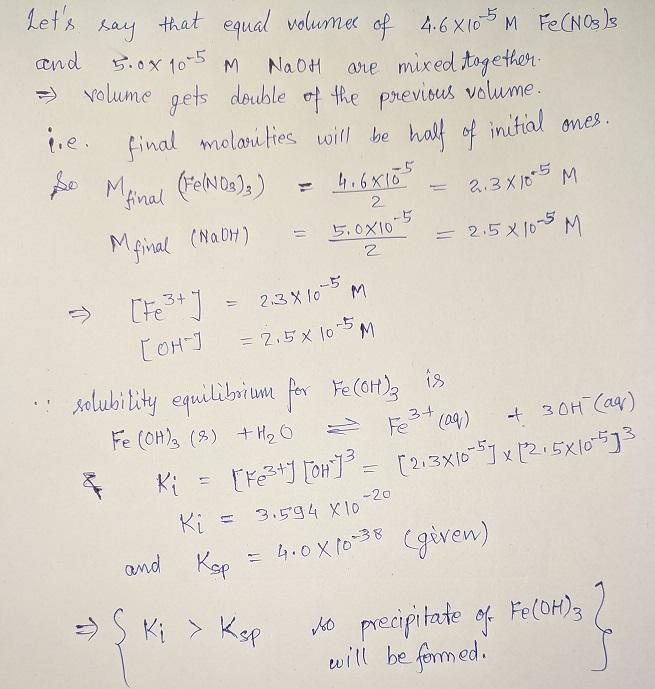 Let's say that equal volumes of 4.6×10⁻⁵ M Fe(NO₃)₃
and 5.0×10⁻⁵ M NaOH are mixed together.
⇒ volume gets double of the previous volume.
i.e. final molarities will be half of initial ones.
So M_final (Fe(NO₃)₃) = 4.6×10⁻⁵/2 = 2.3×10⁻⁵ M
M_final (NaOH) = 5.0×10⁻⁵/2 = 2.5×10⁻⁵ M
⇒ [Fe³⁺] = 2.3×10⁻⁵ M
[OH⁻] = 2.5×10⁻⁵ M
∵ solubility equilibrium for Fe(OH)₃ is
Fe(OH)₃ (s) + H₂O ⇌ Fe³⁺(aq) + 3OH⁻(aq)
& Ki = [Fe³⁺][OH⁻]³ = [2.3×10⁻⁵]×[2.5×10⁻⁵]³
Ki = 3.594×10⁻²⁰
and Ksp = 4.0×10⁻³⁸ (given)
⇒ { Ki > Ksp so precipitate of Fe(OH)₃
will be formed. }